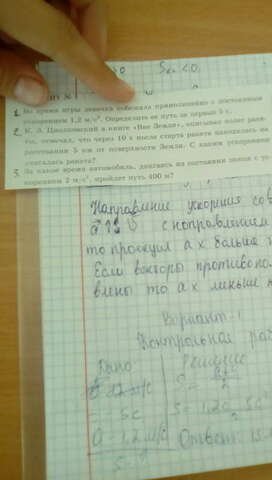 1. Во время игры девочка побежала прямолинейно с постоянным
ускорением 1,2 м/с². Определите её путь за первые 5 с.
2. К. Э. Циолковский в книге «Вне Земли», описывая полет раке-
ты, отмечал, что через 10 с после старта ракета находилась на
расстоянии 5 км от поверхности Земли. С каким ускорением
двигалась ракета?
3. За какое время автомобиль, двигаясь из состояния покоя с ус-
корением 2 м/с², пройдет путь 400 м?
Направление ускорения сов
с направлением
то проекция a x больше
Если векторы противопол
влены то a x меньше
Вариант-1
Контрольная раб
Дано
Решение
= 5с
a = 1,2 м/с
Ответ: 15 м
S = ?